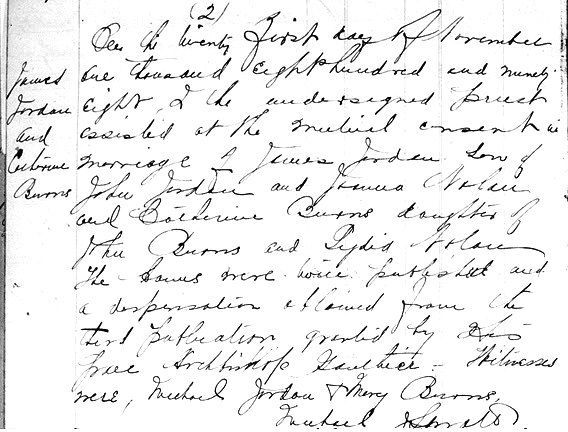 (2)
On the twenty first day of November
one thousand eight hundred and ninety
eight, I the undersigned priest
assisted at the mutual consent in
marriage of James Jordan son of
John Jordan and Joanna Nolan
and Catherine Burns daughter of
John Burns and Nolan
The banns were twice published and
a dispensation obtained from the
third publication granted by His
Grace Archbishop Gauthier - Witnesses
were, Michael Jordan & Mary Burns.
Michael
James
Jordan
and
Catherine
Burns